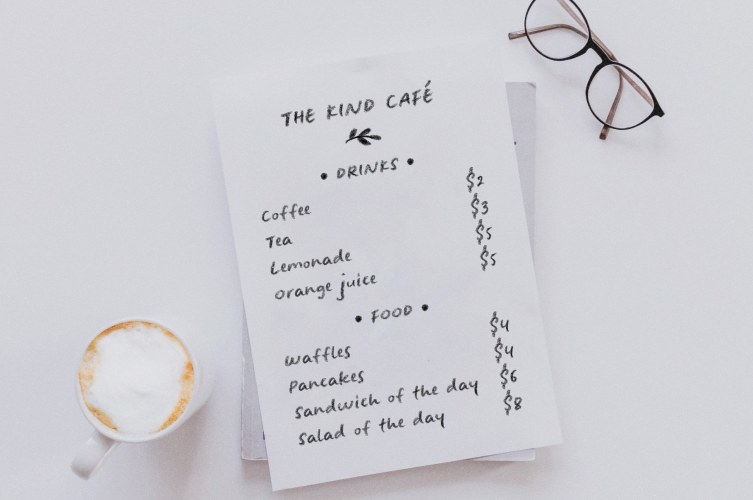 THE KIND CAFÉ
• DRINKS •
Coffee $2
Tea $3
Lemonade $5
Orange juice $5
• FOOD •
Waffles $4
Pancakes $4
Sandwich of the day $6
Salad of the day $8